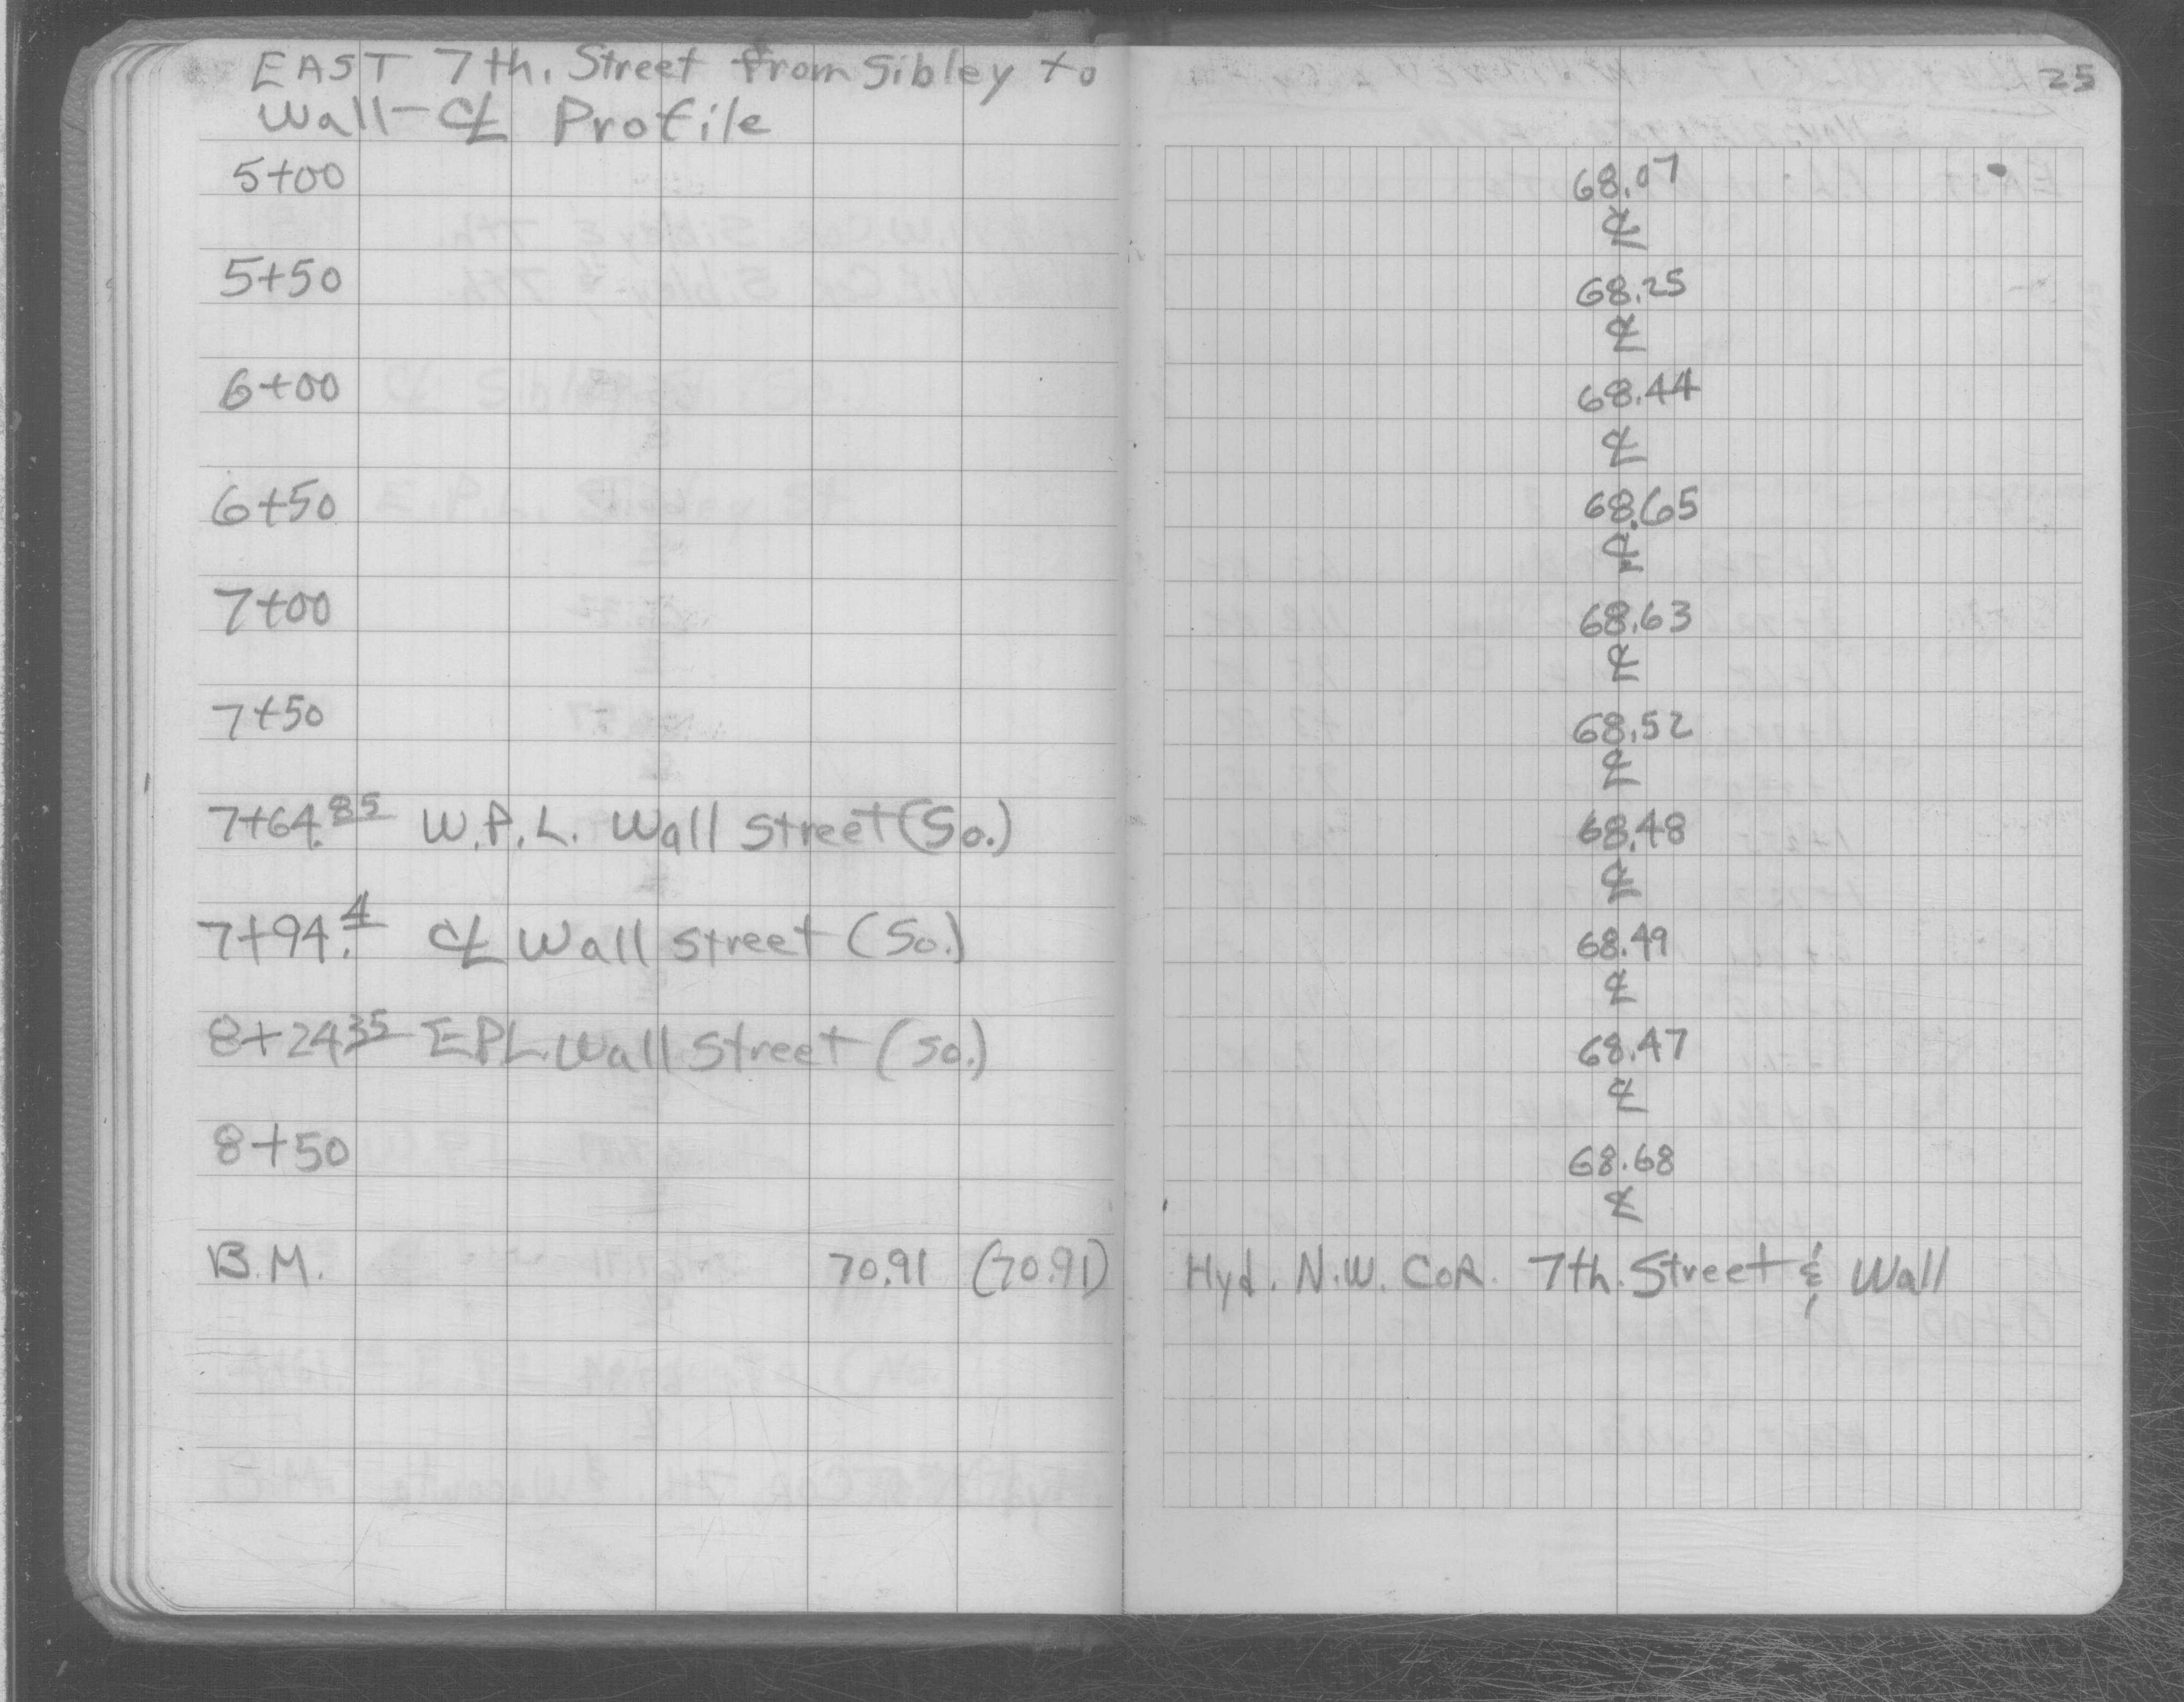 EAST 7th. Street from Sibley to
Wall - ℄ Profile
25
5+00 68.07
℄
5+50 68.25
℄
6+00 68.44
℄
6+50 68.65
℄
7+00 68.63
℄
7+50 68.52
℄
7+64.85 W.P.L. Wall Street (So.) 68.48
℄
7+94.4 ℄ Wall Street (So.) 68.49
℄
8+24.35 E PL. Wall Street (so.) 68.47
℄
8+50 68.68
℄
B.M. 70.91 (70.91) Hyd. N.W. COR. 7th. Street & Wall